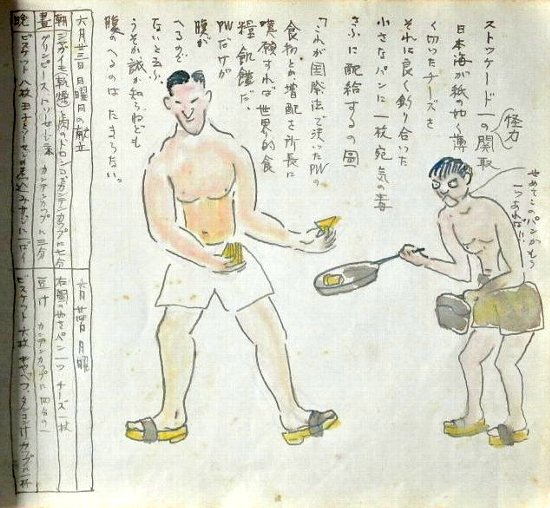 せめてこのパンがもう
一つあれば
怪力
ストッケード一の関取
日本海が紙の如く薄
く切ったチーズを
それに良く釣り合った
小さなパンに一枚宛気の毒
さふに配給するの圖
「これが国際法で決ったPWの
食物 増配を所長に
嘆願すれば世界的食
糧飢饉だ。
PWだけが
腹が
へるので
ないと云ふ、
うそか誠か知らねども
腹のへるのはたまらない。
六月廿三日 日曜日の献立
朝 ジャガイモ(乾燥)と肉のドロンコ カンテンカップに七分
晝 グリンピース トソーセーヂ カンテンカップに三分
晩 ビスケット八枚 玉子とソーセーヂの煮込み
六月廿四日 月曜
右圖の パン一つ チーズ一枚
豆汁 カンテンカップに四分の一
ビスケット六枚 キャベツ カップ一杯